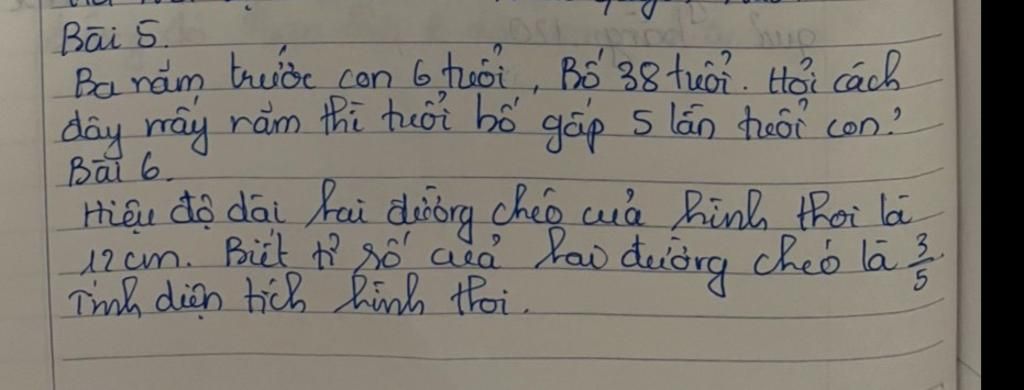 Bài 5.
Ba năm trước con 6 tuổi, Bố 38 tuổi. Hỏi cách
đây mấy năm thì tuổi bố gấp 5 lần tuổi con?
Bài 6.
Hiệu độ dài hai đường chéo của hình thoi là
12 cm. Biết tỉ số của hai đường chéo là 3/5.
Tính diện tích hình thoi.